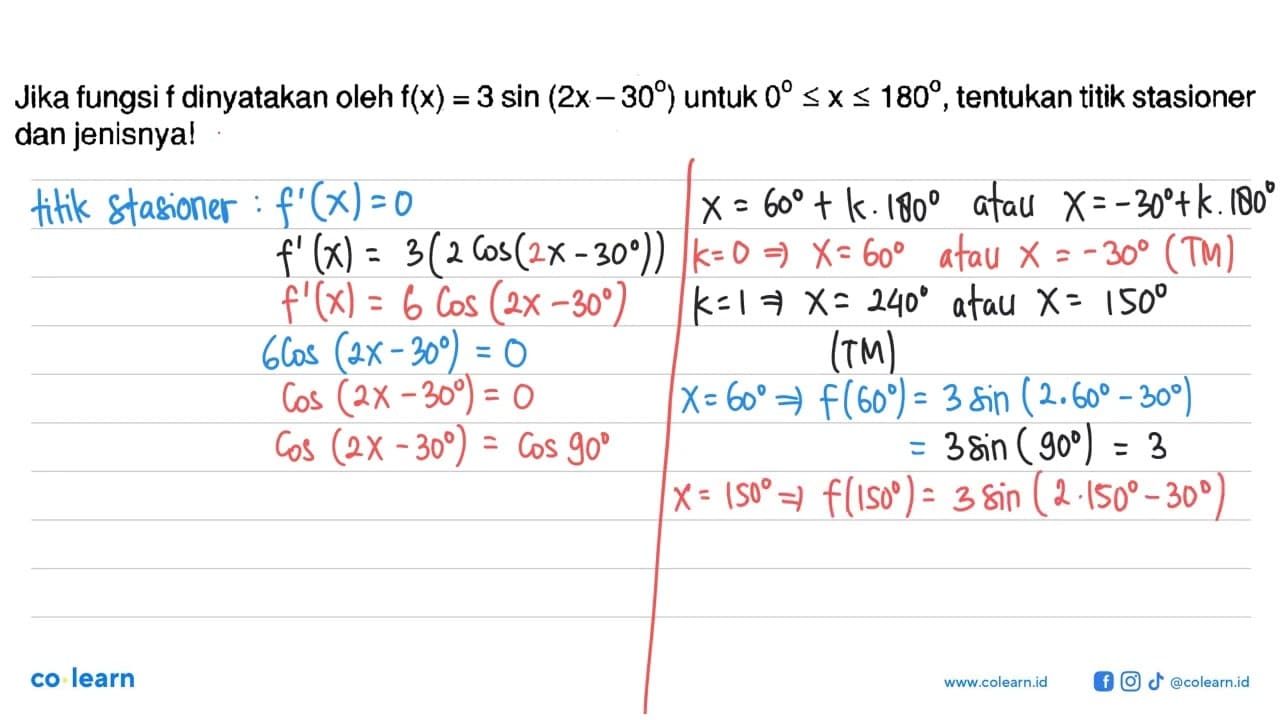 Jika fungsi f dinyatakan oleh f(x) = 3 sin (2x – 30°) untuk 0° ≤ x ≤ 180°, tentukan titik stasioner
dan jenisnya!
titik stasioner : f'(x) = 0
f'(x) = 3(2 Cos(2x - 30°))
f'(x) = 6 Cos (2x - 30°)
6Cos (2x - 30°) = 0
Cos (2x - 30°) = 0
Cos (2x - 30°) = Cos 90°
x = 60° + k. 180° atau x = -30° + k. 180°
k=0 ⇒ x = 60° atau x = -30° (TM)
k=1 ⇒ x = 240° atau x = 150°
(TM)
x = 60° ⇒ f(60°) = 3 sin (2.60° - 30°)
= 3 sin (90°) = 3
x = 150° ⇒ f(150°) = 3 sin (2.150° - 30°)
co learn
www.colearn.id
@colearn.id